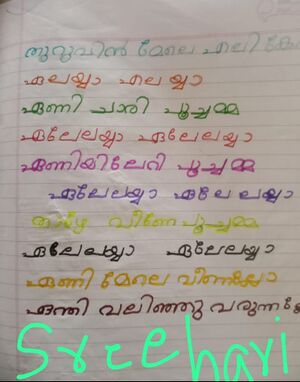 തുറുവിൻ മേലെ എലി കേ
ഏലയ്യാ എലയ്യാ
ഏണി ചാരി പൂച്ചമ്മ
ഏലേലയ്യാ ഏലേലയ്യാ
ഏണിയിലേറി പൂച്ചമ്മ
ഏലേലയ്യാ ഏലേലയ്യാ
താഴെ വീണേ പൂച്ചമ്മ
ഏലേലയ്യാ ഏലേലയ്യാ
ഏണി മേലെ വീണയ്യോ
ഏന്തി വലിഞ്ഞു വരുന്ന
Sreehari